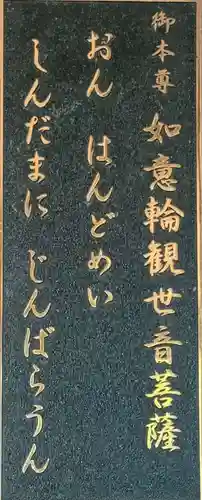 御本尊 如意輪観世音菩薩
おん はんどめい
しんだまに じんばらうん